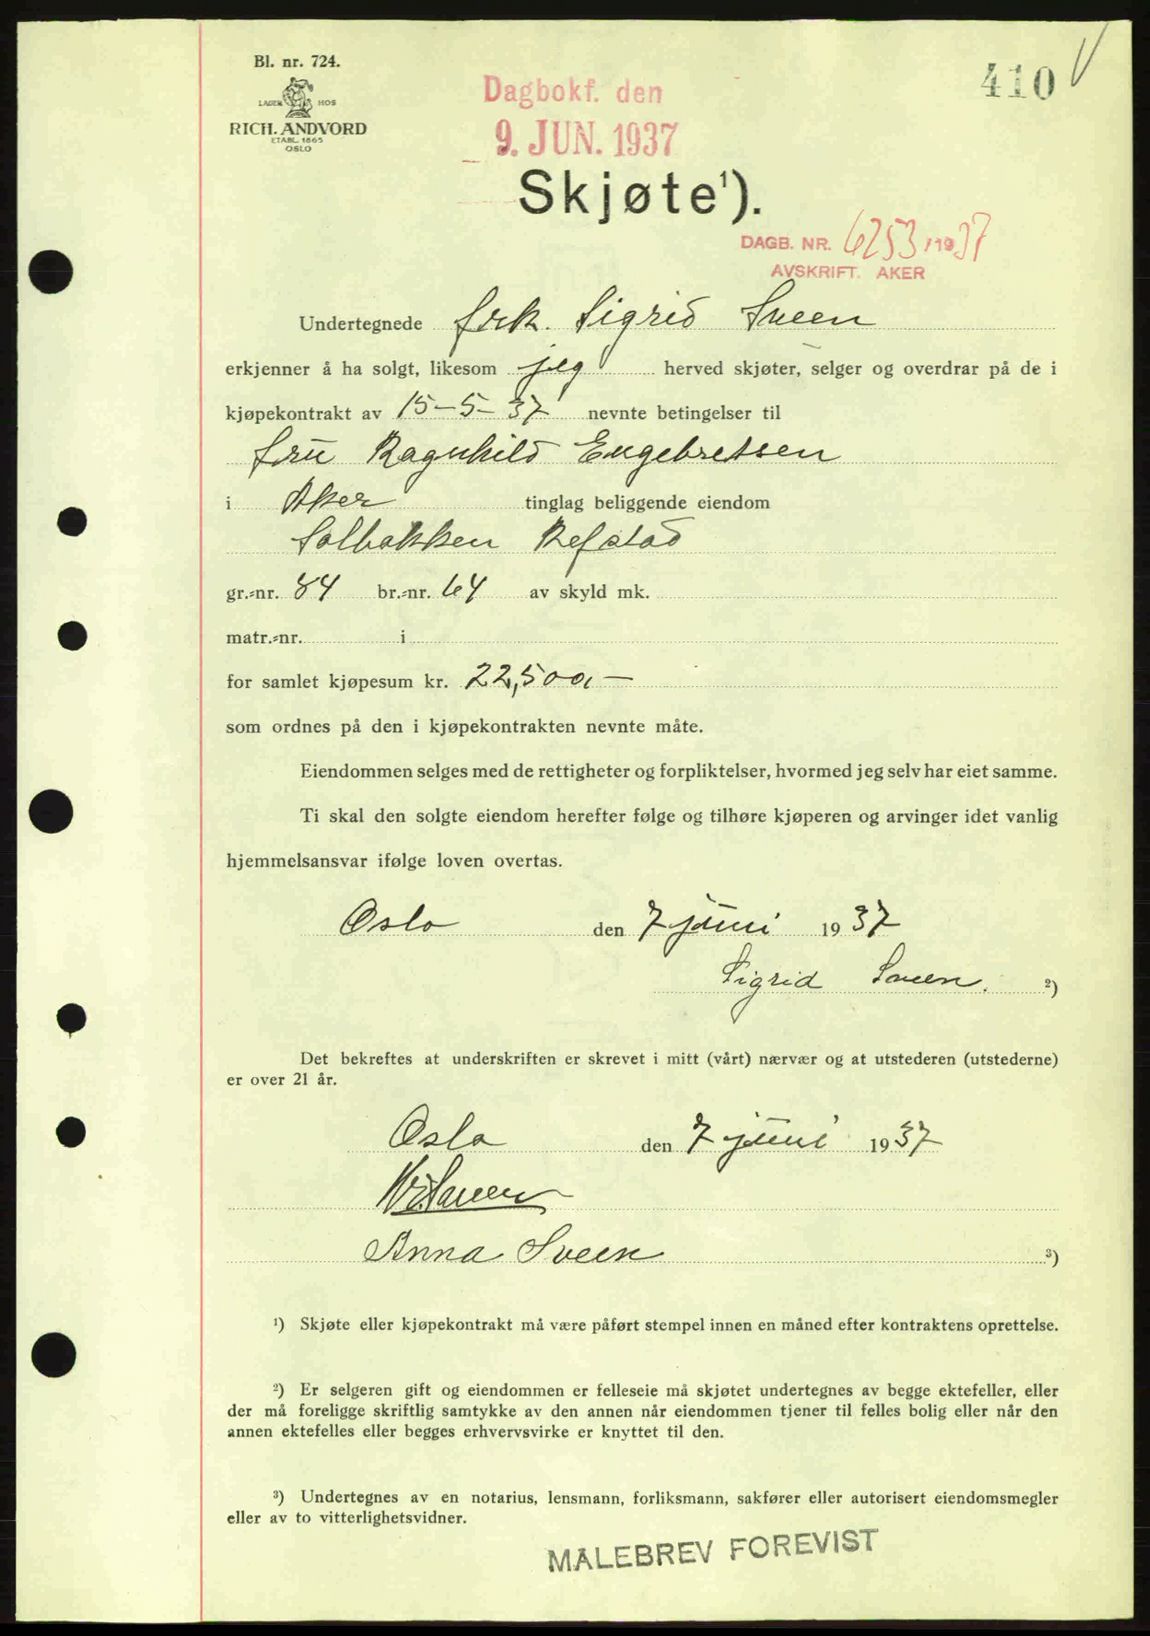 Bl. nr. 724.
LAGER HOS
RICH. ANDVORD
ETABL. 1865
OSLO
Dagbokf. den
9. JUN. 1937
410
Skjøte¹).
DAGB. NR. 6253/1937
AVSKRIFT. AKER
Undertegnede frk. Sigrid Sveen
erkjenner å ha solgt, likesom jeg herved skjøter, selger og overdrar på de i
kjøpekontrakt av 15-5-37 nevnte betingelser til
fru Ragnhild Engebretsen
i Aker tinglag beliggende eiendom
Solbakken Refstad
gr.-nr. 84 br.-nr. 64 av skyld mk.
matr.-nr. i
for samlet kjøpesum kr. 22,500,-
som ordnes på den i kjøpekontrakten nevnte måte.
Eiendommen selges med de rettigheter og forpliktelser, hvormed jeg selv har eiet samme.
Ti skal den solgte eiendom herefter følge og tilhøre kjøperen og arvinger idet vanlig
hjemmelsansvar ifølge loven overtas.
Oslo den 7 juni 1937
Sigrid Sveen. ²)
Det bekreftes at underskriften er skrevet i mitt (vårt) nærvær og at utstederen (utstederne)
er over 21 år.
Oslo den 7 juni 1937
Anna Sveen ³)
¹) Skjøte eller kjøpekontrakt må være påført stempel innen en måned efter kontraktens oprettelse.
²) Er selgeren gift og eiendommen er felleseie må skjøtet undertegnes av begge ektefeller, eller
der må foreligge skriftlig samtykke av den annen når eiendommen tjener til felles bolig eller når den
annen ektefelles eller begges erhvervsvirke er knyttet til den.
³) Undertegnes av en notarius, lensmann, forliksmann, sakfører eller autorisert eiendomsmegler
eller av to vitterlighetsvidner.
MALEBREV FOREVIST